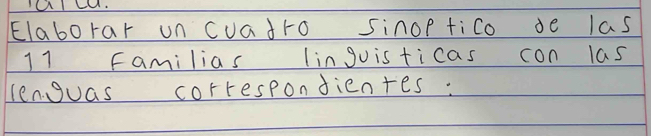 Elaborar un cuadro sinoptico de las
11 Familias linguisticas con las
lenguas correspondientes: